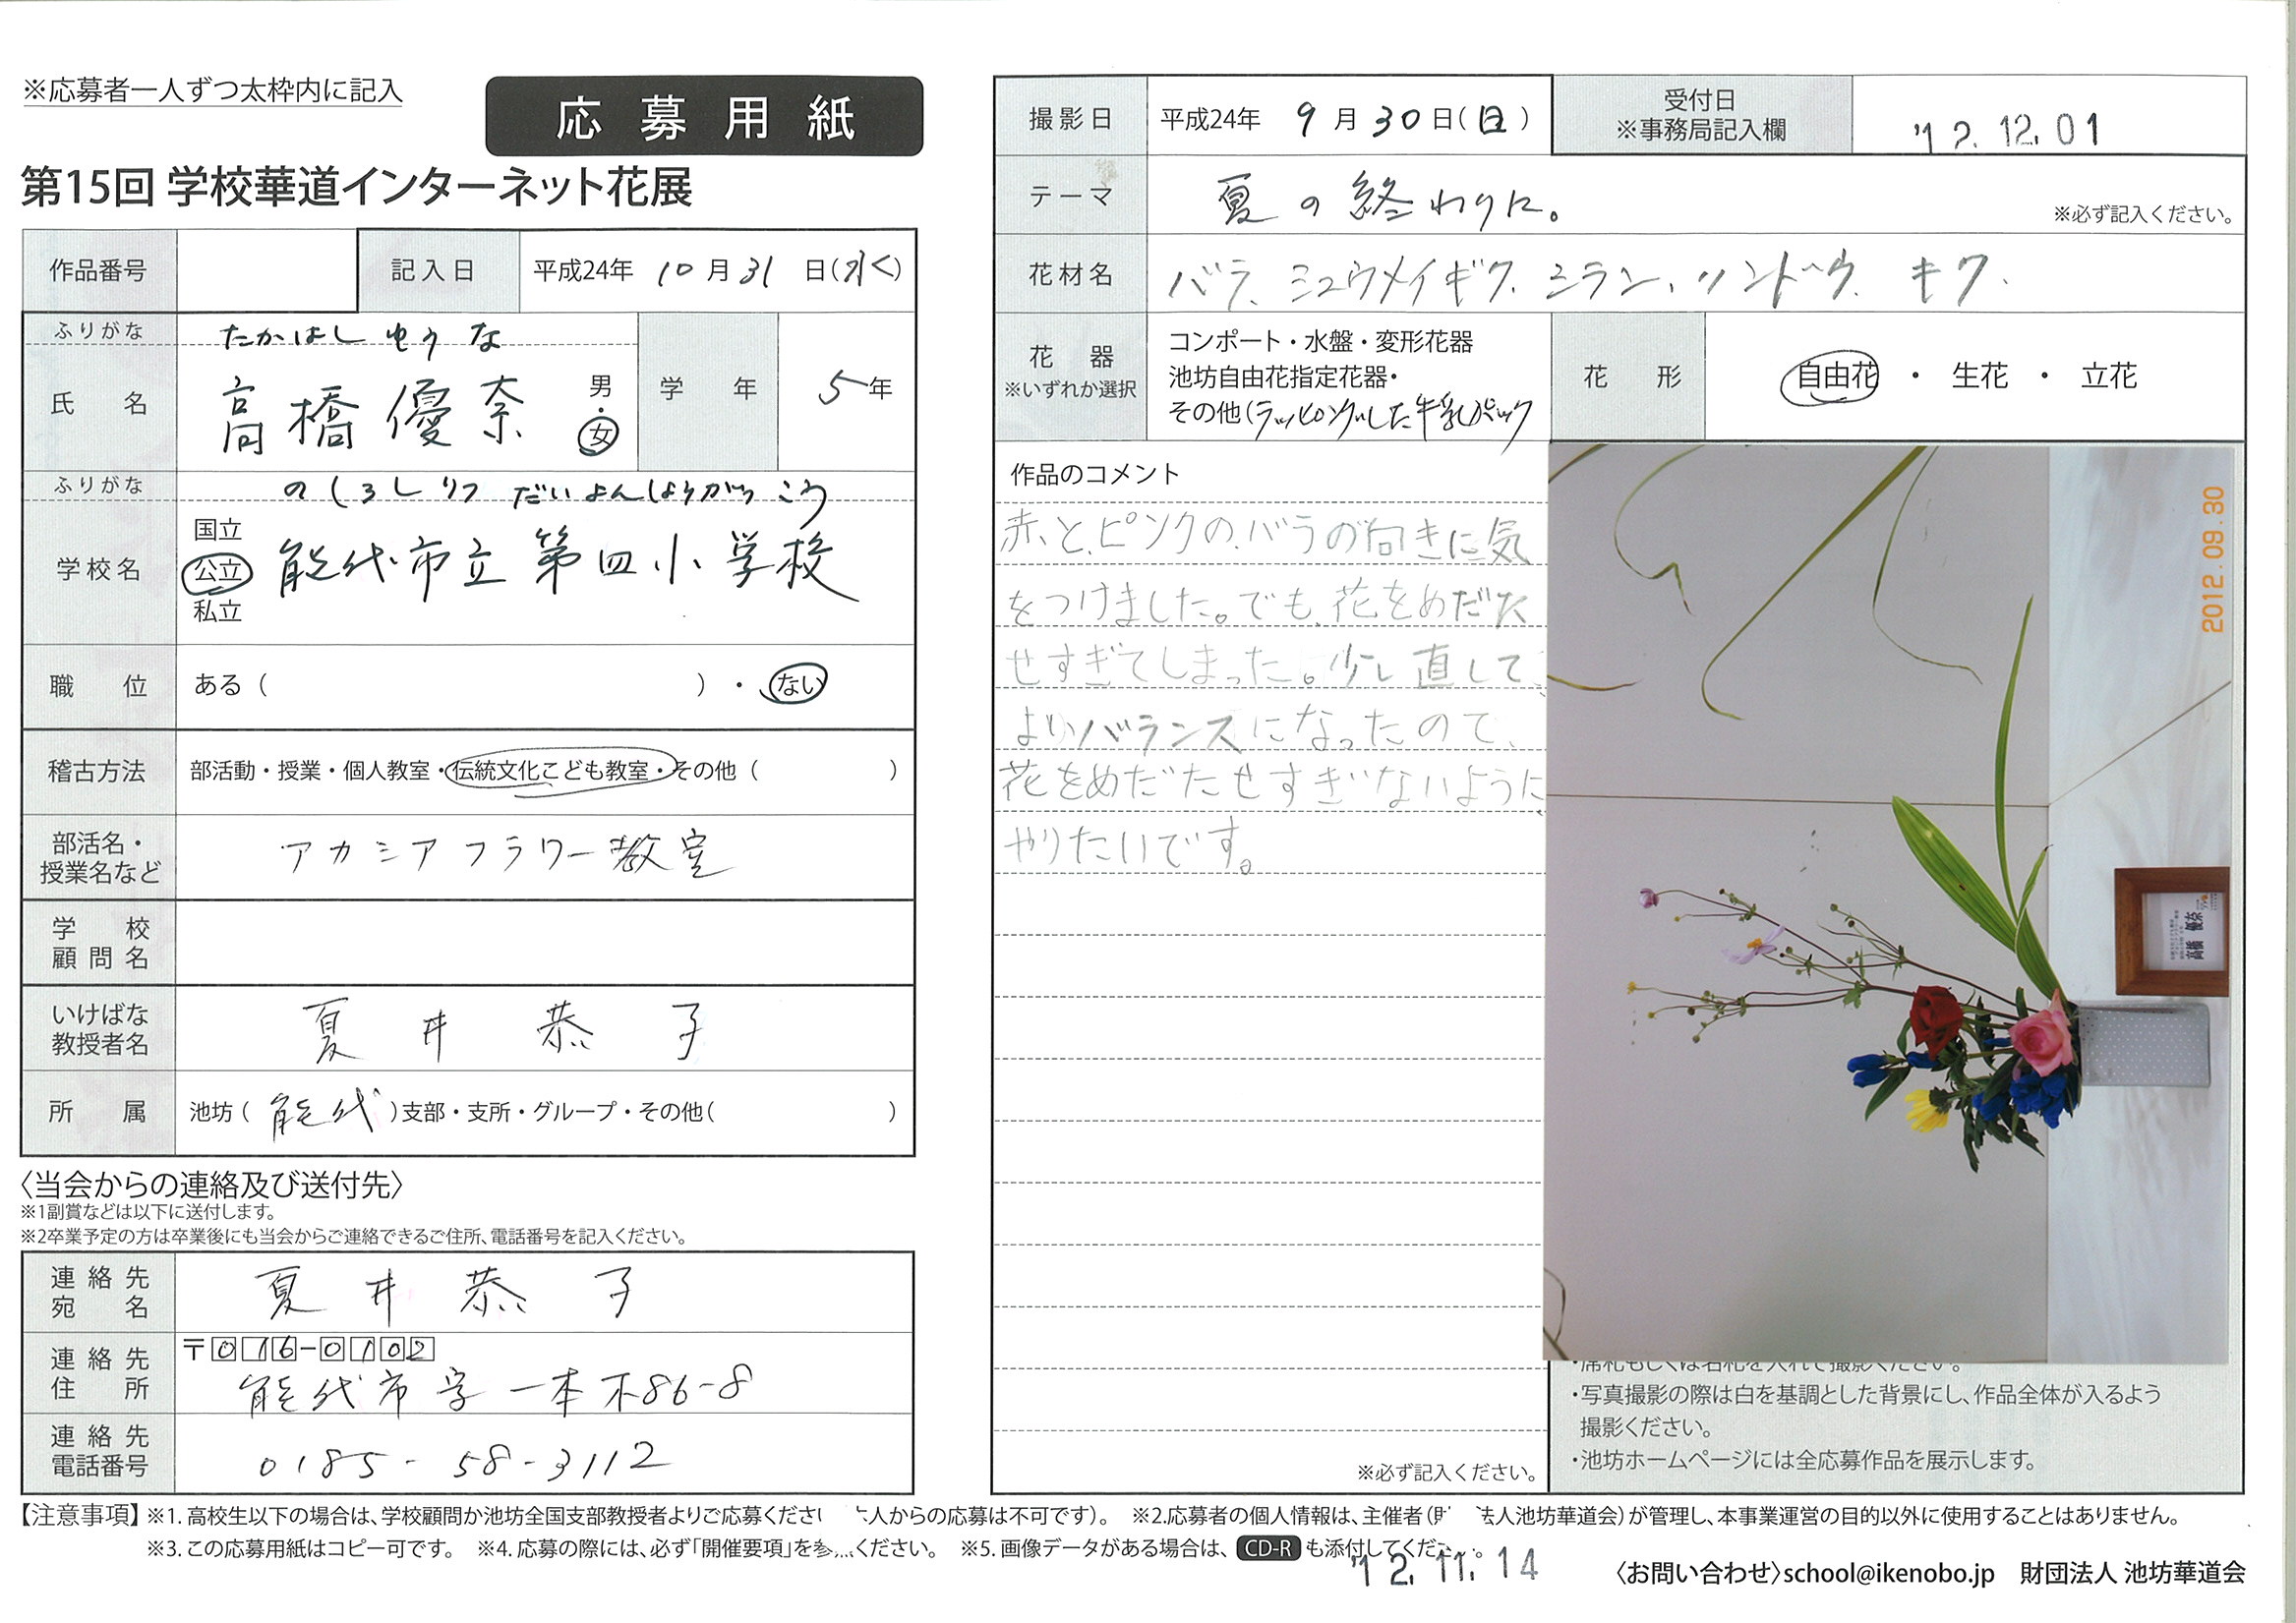 ※応募者一人ずつ太枠内に記入
応募用紙
第15回 学校華道インターネット花展
作品番号
記入日 平成24年 10月31日(水)
ふりがな たかはし ゆうな
氏名 高橋優奈 男・女
学年 5年
ふりがな のしろしりつ だいよんしょうがっこう
学校名 国立 公立 私立 能代市立第四小学校
職位 ある( )・ない
稽古方法 部活動・授業・個人教室・伝統文化こども教室・その他( )
部活名・授業名など アカシアフラワー教室
学校顧問名
いけばな教授者名 夏井恭子
所属 池坊(能代)支部・支所・グループ・その他( )
〈当会からの連絡及び送付先〉
※1副賞などは以下に送付します。
※2卒業予定の方は卒業後にも当会からご連絡できるご住所、電話番号を記入ください。
連絡先宛名 夏井恭子
連絡先住所 〒016-0102
能代市字一本木86-8
連絡先電話番号 0185-58-3112
撮影日 平成24年 9月30日(日)
受付日 ※事務局記入欄 '12.12.01
テーマ 夏の終わりに。 ※必ず記入ください。
花材名 バラ、ミュウメイギク、ミラン、リンドウ、キク、
花器 ※いずれか選択
コンポート・水盤・変形花器
池坊自由花指定花器・
その他(ラッピングした牛乳パック
花形 自由花・生花・立花
作品のコメント
赤と、ピンクの、バラの向きに気
をつけました。でも、花をめだた
せすぎてしまった。少し直して、
よいバランスになったので、
花をめだたせすぎないように
やりたいです。
※必ず記入ください。
2012.09.30
高橋 優奈
・席札もしくは名札を入れて撮影ください。
・写真撮影の際は白を基調とした背景にし、作品全体が入るよう
撮影ください。
・池坊ホームページには全応募作品を展示します。
【注意事項】※1.高校生以下の場合は、学校顧問か池坊全国支部教授者よりご応募くださ 人からの応募は不可です)。 ※2.応募者の個人情報は、主催者( 法人池坊華道会)が管理し、本事業運営の目的以外に使用することはありません。
※3.この応募用紙はコピー可です。 ※4.応募の際には、必ず「開催要項」を参 ください。 ※5.画像データがある場合は、CD-Rも添付してください。
'12.11.14
〈お問い合わせ〉school@ikenobo.jp 財団法人 池坊華道会